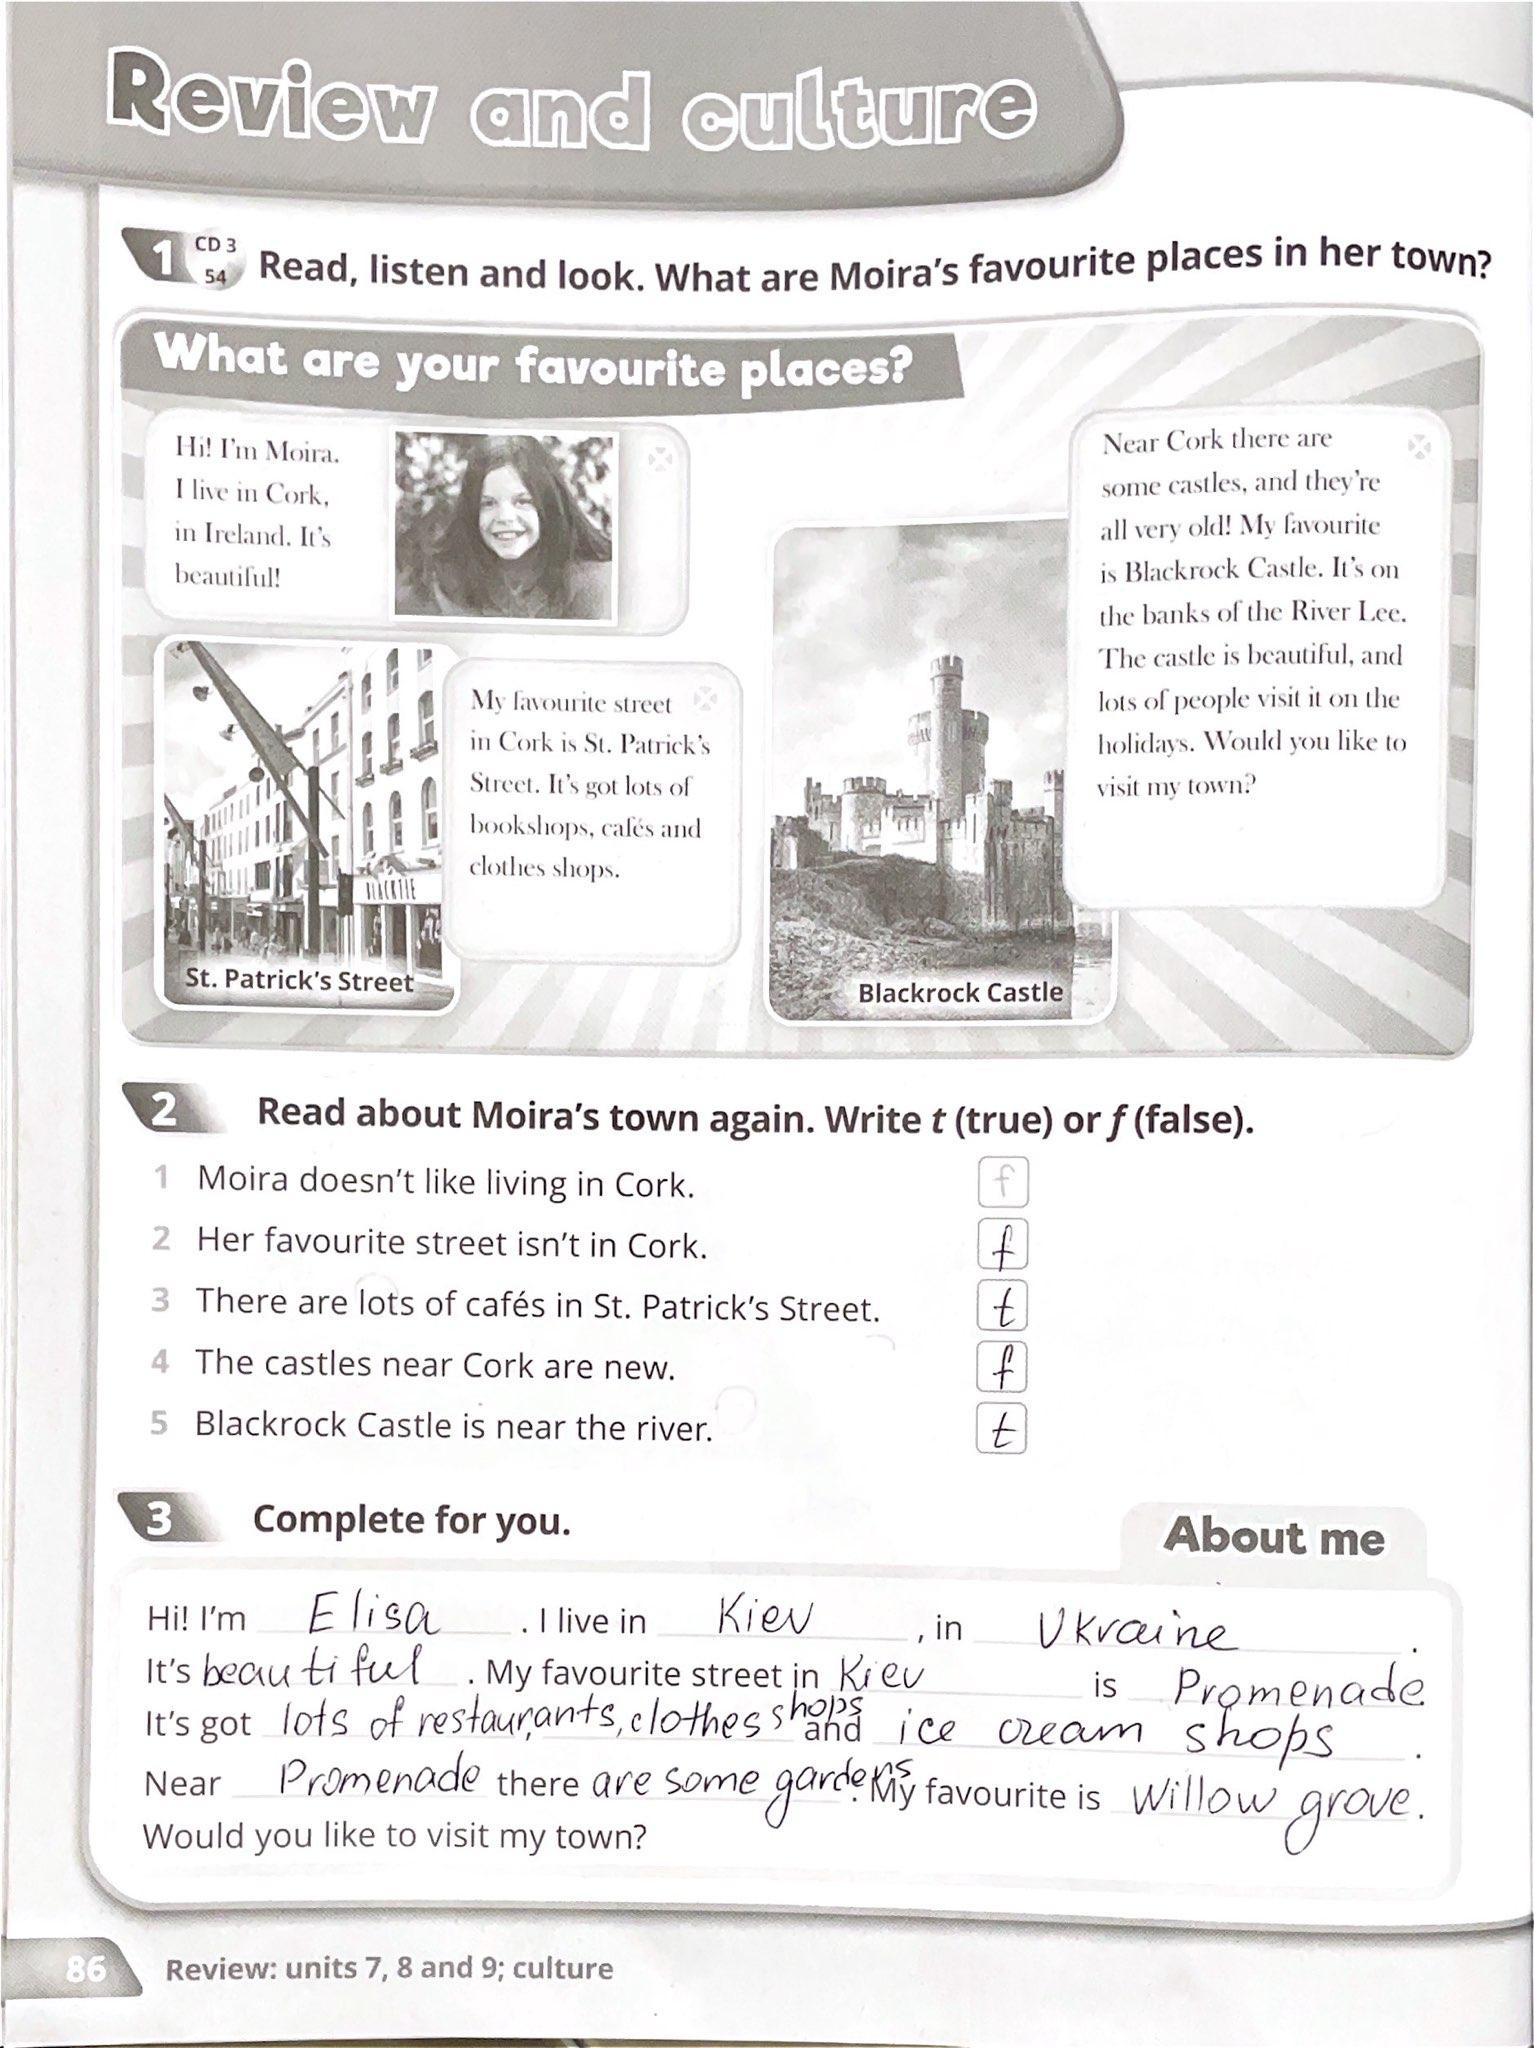 Review and culture
1 CD 3 54 Read, listen and look. What are Moira's favourite places in her town?
What are your favourite places?
Hi! I'm Moira.
I live in Cork,
in Ireland. It's
beautiful!
My favourite street
in Cork is St. Patrick's
Street. It's got lots of
bookshops, cafés and
clothes shops.
BLACKTIE
St. Patrick's Street
Near Cork there are
some castles, and they're
all very old! My favourite
is Blackrock Castle. It's on
the banks of the River Lee.
The castle is beautiful, and
lots of people visit it on the
holidays. Would you like to
visit my town?
Blackrock Castle
2 Read about Moira's town again. Write t (true) or f (false).
1 Moira doesn't like living in Cork. f
2 Her favourite street isn't in Cork. f
3 There are lots of cafés in St. Patrick's Street. t
4 The castles near Cork are new. f
5 Blackrock Castle is near the river. t
3 Complete for you.
About me
Hi! I'm Elisa. I live in Kiev, in Ukraine.
It's beautiful. My favourite street in Kiev is Promenade
It's got lots of restaurants, clothes shops and ice cream shops.
Near Promenade there are some gardens. My favourite is Willow grove.
Would you like to visit my town?
86 Review: units 7, 8 and 9; culture